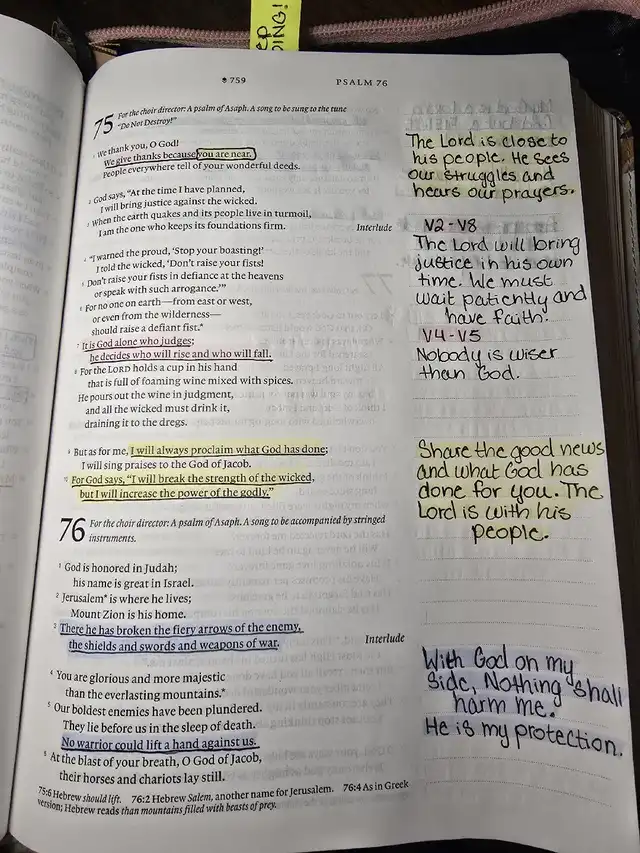 ep
ING!
759
PSALM 76
75 For the choir director: A psalm of Asaph. A song to be sung to the tune
"Do Not Destroy!"
1 We thank you, O God!
We give thanks because you are near.
People everywhere tell of your wonderful deeds.
2 God says, "At the time I have planned,
I will bring justice against the wicked.
3 When the earth quakes and its people live in turmoil,
I am the one who keeps its foundations firm.
Interlude
4 "I warned the proud, 'Stop your boasting!'
I told the wicked, 'Don't raise your fists!
5 Don't raise your fists in defiance at the heavens
or speak with such arrogance.'"
6 For no one on earth—from east or west,
or even from the wilderness—
should raise a defiant fist.*
7 It is God alone who judges;
he decides who will rise and who will fall.
8 For the LORD holds a cup in his hand
that is full of foaming wine mixed with spices.
He pours out the wine in judgment,
and all the wicked must drink it,
draining it to the dregs.
9 But as for me, I will always proclaim what God has done;
I will sing praises to the God of Jacob.
10 For God says, "I will break the strength of the wicked,
but I will increase the power of the godly."
76 For the choir director: A psalm of Asaph. A song to be accompanied by stringed
instruments.
1 God is honored in Judah;
his name is great in Israel.
2 Jerusalem* is where he lives;
Mount Zion is his home.
3 There he has broken the fiery arrows of the enemy,
the shields and swords and weapons of war.
Interlude
4 You are glorious and more majestic
than the everlasting mountains.*
5 Our boldest enemies have been plundered.
They lie before us in the sleep of death.
No warrior could lift a hand against us.
6 At the blast of your breath, O God of Jacob,
their horses and chariots lay still.
75:6 Hebrew should lift. 76:2 Hebrew Salem, another name for Jerusalem. 76:4 As in Greek
version; Hebrew reads than mountains filled with beasts of prey.
The Lord is close to
his people. He sees
our struggles and
hears our prayers.
V2-V8
The Lord will bring
justice in his own
time. We must
wait patiently and
have faith.
V4-V5
Nobody is wiser
than God.
Share the good news
and what God has
done for you. The
Lord is with his
people.
With God on my
side, Nothing shall
harm me.
He is my protection.